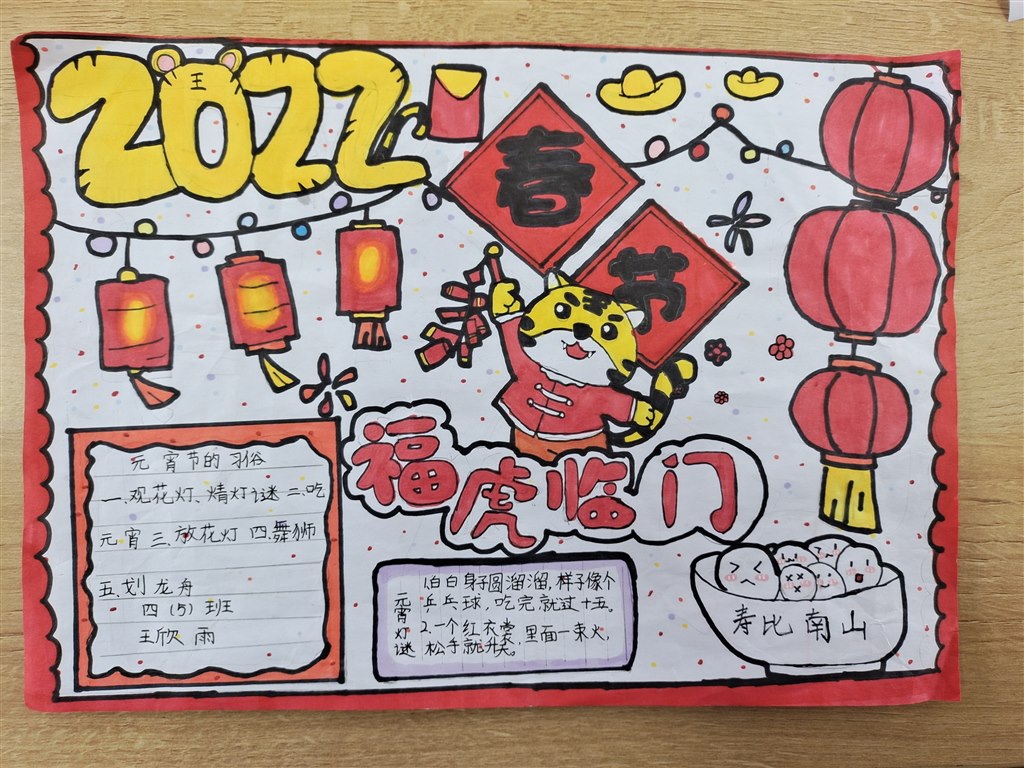 2022
王
春
节
福虎临门
元宵节的习俗
一、观花灯、猜灯谜 二、吃
元宵 三、放花灯 四、舞狮
五、划龙舟
四（5）班
王欣雨
元宵灯谜
1.白白身子圆溜溜，样子像个
乒乓球，吃完就过十五。
2.一个红衣裳，里面一束火，
松手就升天。
寿比南山